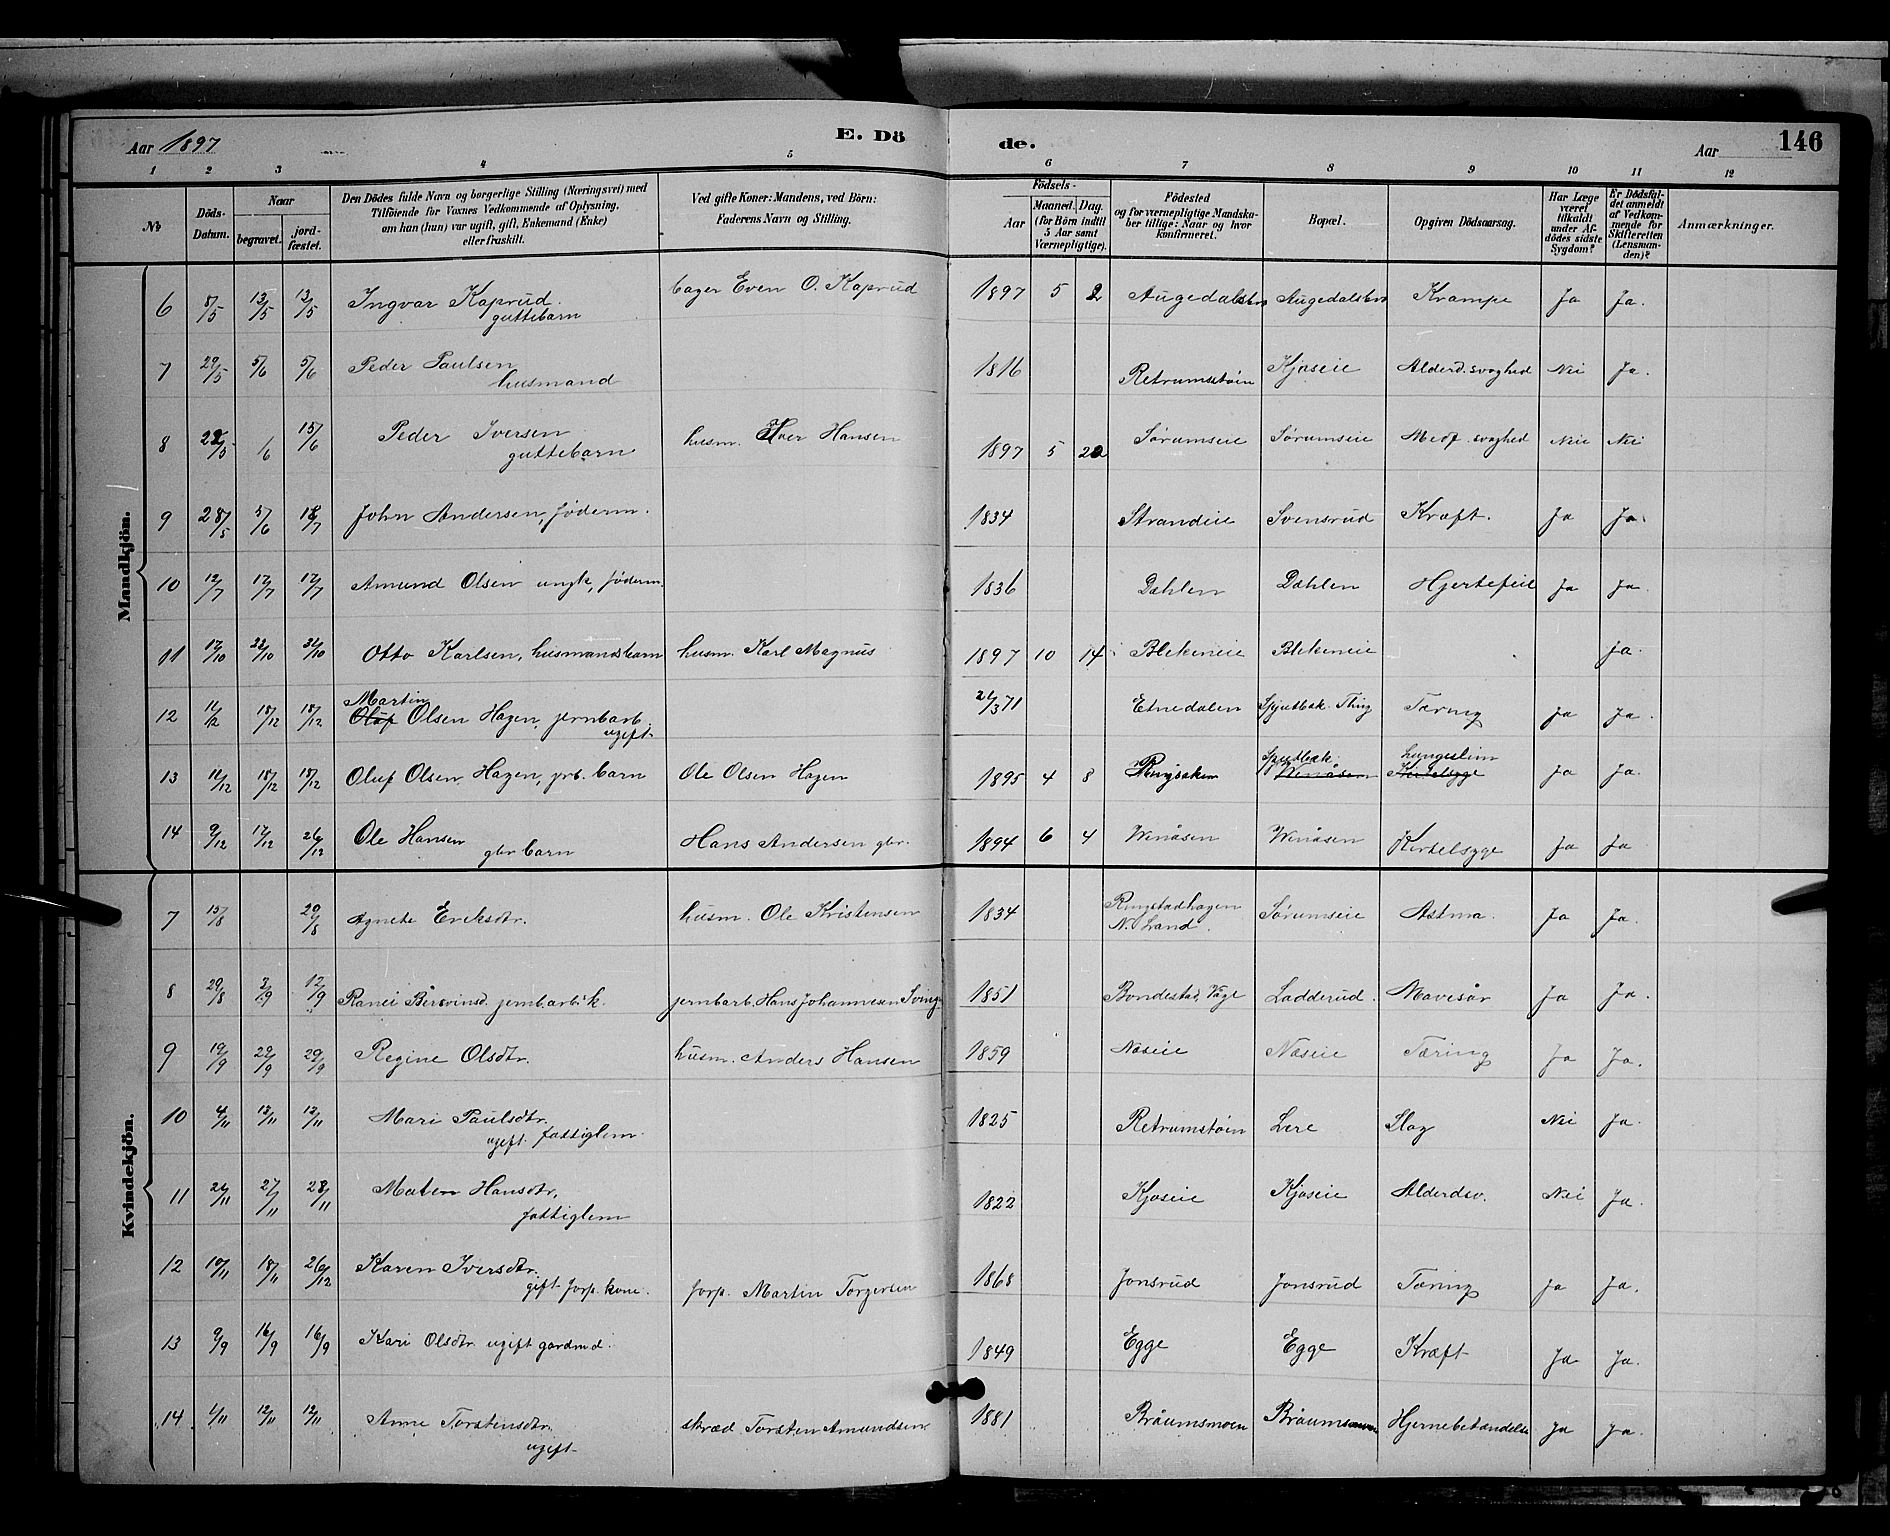 Aar 1897
E. Dö
de.
Aar
146
1 2 3 4 5 6 7 8 9 10 11 12
№
Döds-Datum.
Naar
begravet.
jord-fæstet.
Den Dödes fulde Navn og borgerlige Stilling (Næringsvei) med
Tilföiende for Voxnes Vedkommende af Oplysning,
om han (hun) var ugift, gift, Enkemand (Enke)
eller fraskilt.
Ved gifte Koner: Mandens, ved Börn:
Faderens Navn og Stilling.
Födsels-
Aar
Maaned. Dag.
(for Börn indtil
5 Aar samt
Værnepligtige).
Födested
og for værnepligtige Mandska-
ber tillige: Naar og hvor
konfirmeret.
Bopæl.
Opgiven Dödsaarsag.
Har Læge
været
tilkaldt
under Af-
dödes sidste
Sygdom?
Er Dödsfal-
det anmeldt
af Vedkom-
mende for
Skifteretten
(Lensman-
den)?
Anmærkninger.
Mandkjön.
6 8/5 13/5 13/5 Ingvar Kaprud. guttebarn bager Even O. Kaprud 1897 5 2 Augedalsbro Augedalsbro Krampe Ja Ja.
7 29/5 5/6 5/6 Peder Paulsen husmand 1816 Retrumstøin Kjoseie Alderd. svaghed Nei Ja.
8 22/5 /6 15/6 Peder Iversen guttebarn husm. Iver Hansen 1897 5 22 Sørumseie Sørumseie Medf. svaghed Nei Nei
9 28/5 5/6 18/7 John Andersen, føderm. 1834 Strandeie Svensrud Kræft. Ja Ja.
10 12/7 17/7 17/7 Amund Olsen ungk, føderm. 1836 Dæhlen Dæhlen Hjertefeil Ja Ja.
11 17/10 23/10 24/10 Otto Karlsen, husmandsbarn husm. Karl Magnus 1897 10 14 Blekeneie Blekeneie Ja.
12 11/12 18/12 18/12 Martin Oluf Olsen Hagen, jernbarb. ugift 21/3 71 Etnedalen Spjutbæk. Thing Tæring Ja Ja.
13 11/12 18/12 18/12 Oluf Olsen Hagen, jrb. barn Ole Olsen Hagen 1895 4 8 Ringsaker Spjutbæk. Wenåsen Lungeslim Kirtelsyge Ja Ja.
14 9/12 17/12 26/12 Ole Hansen gbr barn Hans Andersen gbr. 1894 6 4 Wenåsen Wenåsen Kirtelsyge Ja Ja
Kvindekjön.
7 15/8 20/8 Agnete Eriksdtr. husm. Ole Kristensen 1834 Ringstadhagen N. Land. Sørumseie Astma. Ja Ja.
8 29/8 3/9 12/9 Ranei Bersvinsd. jernbarb k. jernbarb. Hans Johannesen Sving 1851 Bondestad, Våge Ladderud. Mavesår Ja Ja.
9 19/9 29/9 29/9 Regine Olsdtr. husm. Anders Hansen 1859 Næseie Næseie Tæring Ja Ja.
10 4/11 12/11 12/11 Mari Paulsdtr. ugift fattiglem. 1825 Retrumstøin Lere Slag Nei Ja.
11 21/11 27/11 28/11 Maten Hansdtr. fattiglem 1822 Kjoseie Kjoseie Alderdsv. Nei Ja.
12 10/11 18/11 26/12 Karen Iversdtr. gift forp. kone. forp. Martin Torgersen 1868 Jonsrud Jonsrud Tæring Ja Ja.
13 9/9 16/9 16/9 Kari Olsdtr. ugift gardmd. 1849 Egge Egge Kræft Ja Ja.
14 1/11 12/11 12/11 Anne Torstensdtr. ugift skræd Torsten Amundsen 1881 Bråumsmoen Bråumsmoen Hjernebetændelse Ja Ja.